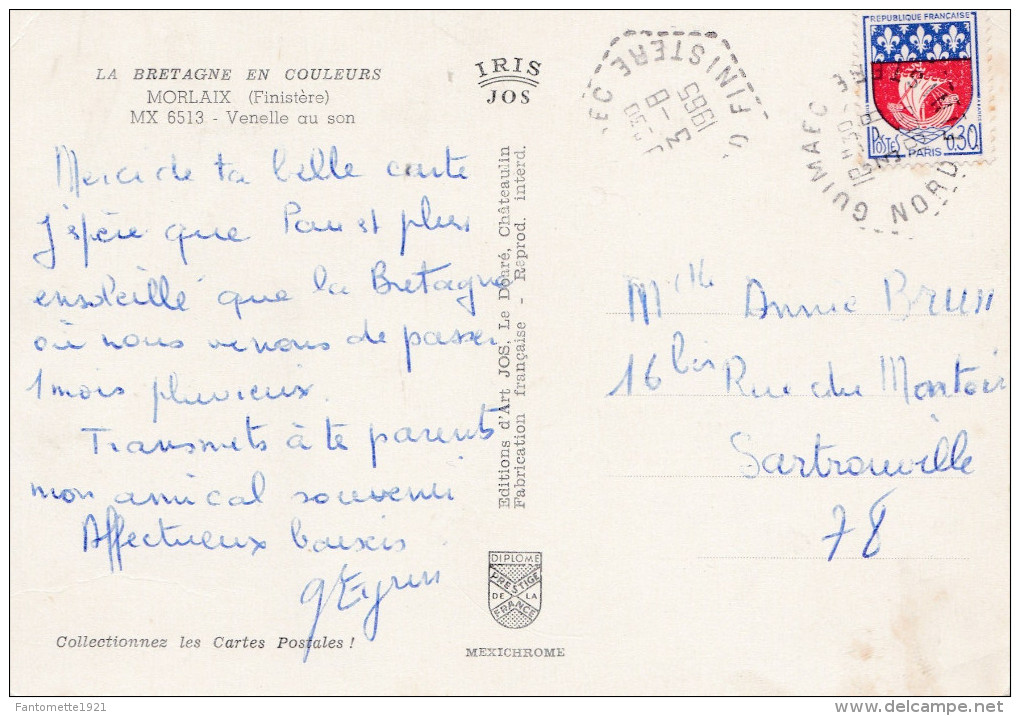 LA BRETAGNE EN COULEURS
MORLAIX (Finistère)
MX 6513 - Venelle au son
Merci de ta belle carte
J'espère que Pau est plus
ensoleillé que la Bretagne
où nous venons de passer
1 mois pluvieux.
Transmets à te parents
mon amical souvenir
Affectueux baisers
Collectionnez les Cartes Postales !
IRIS
JOS
Editions d'Art JOS, Le Doaré, Châteaulin
Fabrication française - Reprod. interd.
DIPLOME
PRESTIGE
DE LA
FRANCE
MEXICHROME
FINISTERE
3 - 8
1965
REPUBLIQUE FRANÇAISE
POSTES
0,30
PARIS
GUIMAEC
NORD
Mlle Annie Brun
16 bis Rue du Montoir
Sartrouville
78
Fantomette1921
delcampe.net